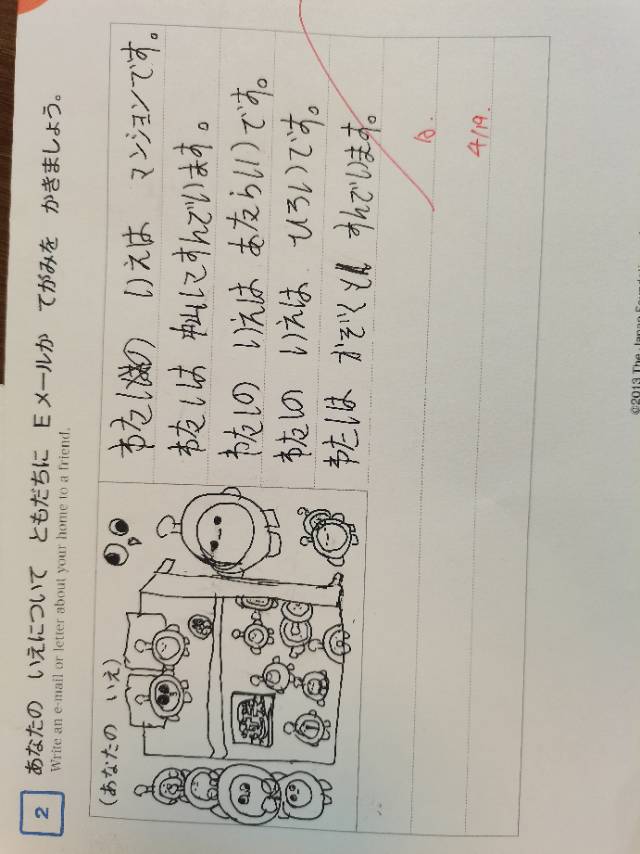 2
あなたの いえについて ともだちに Eメールか てがみを かきましょう。
Write an e-mail or letter about your home to a friend.
(あなたの いえ)
わたしの いえは マンションです。
わたしは すんでいます。
わたしの いえは あたらしいです。
わたしの いえは ひろいです。
わたしは かぞくと すんでいます。
4/19.
©2013 The Japan Foundation